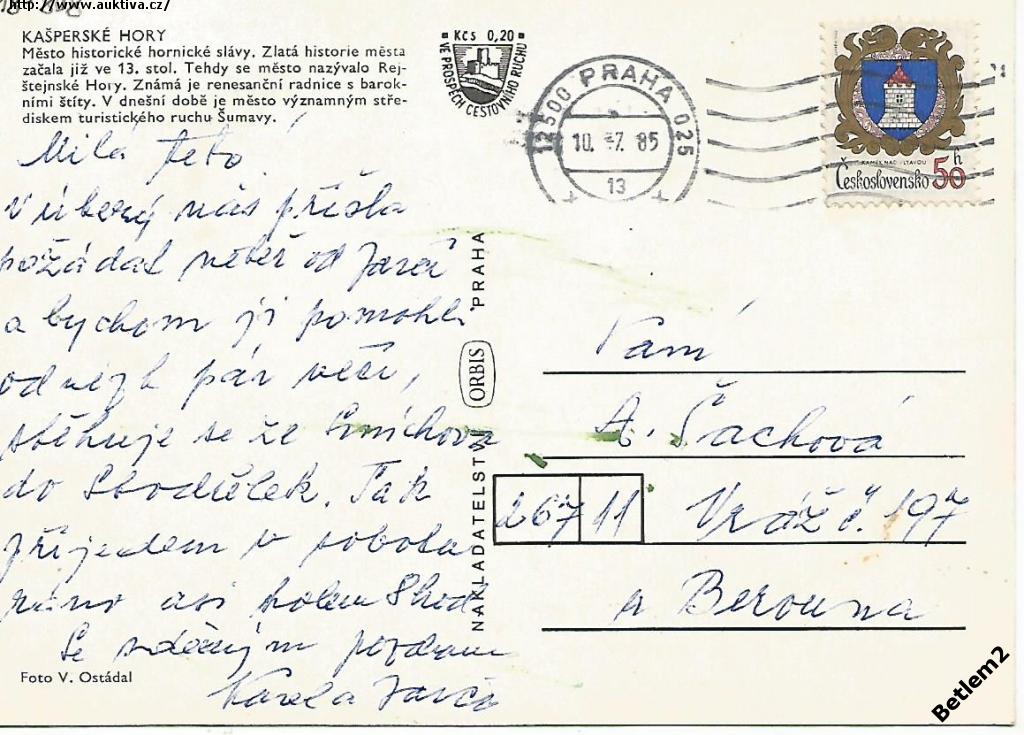 http://www.auktiva.cz/
KAŠPERSKÉ HORY
Město historické hornické slávy. Zlatá historie města
začala již ve 13. stol. Tehdy se město nazývalo Rej-
štejnské Hory. Známá je renesanční radnice s barok-
ními štíty. V dnešní době je město významným stře-
diskem turistického ruchu Šumavy.
Kčs 0,20
VE PROSPĚCH CESTOVNÍHO RUCHU
12500 PRAHA 025
10. 7. 85
13
KAMEN NAD VLTAVOU
Československo 50 h
Milá teto
v úterý nás přišla
požádat neteř od
a bychom ji pomohli
odvézt pár věcí,
stěhuje se ze Smíchova
do Stodůlek. Tak
přijedem v sobotu
ráno asi kolem 8 hod
Se srdečným pozdravem
Karel a
Foto V. Ostádal
NAKLADATELSTVÍ ORBIS PRAHA
Vám
A. Šachová
267 11 Vráž č. 197
u Berouna
Betlem2